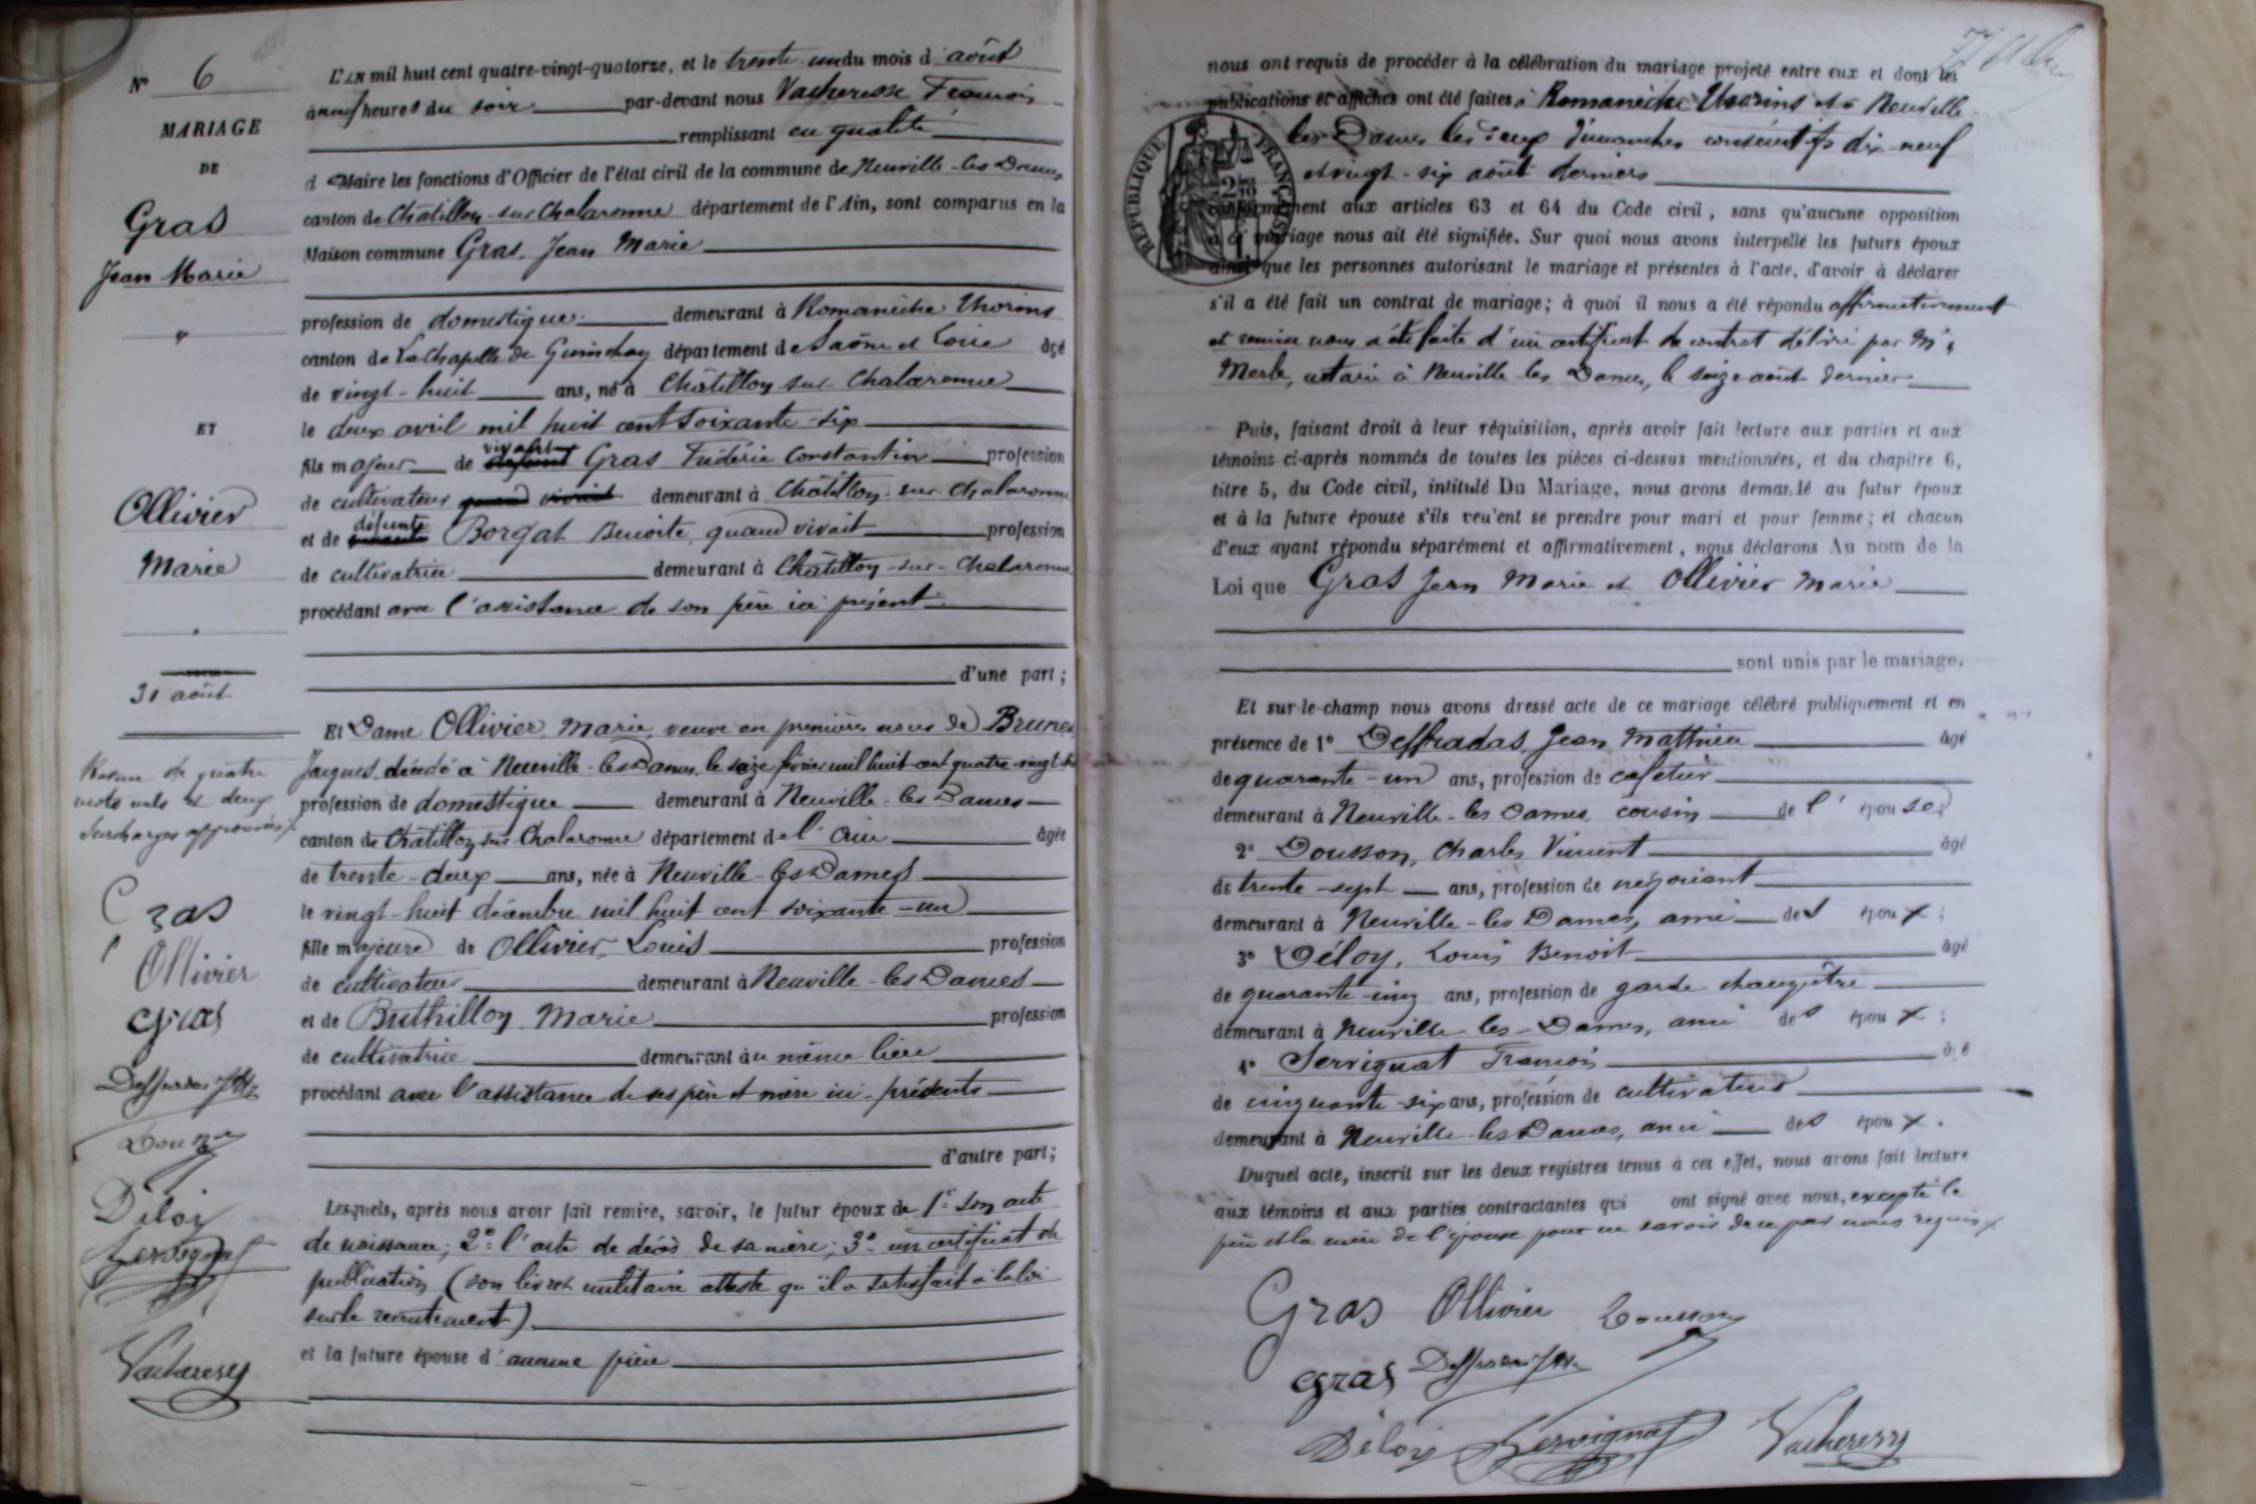 N° 6
MARIAGE
DE
Gras
Jean Marie
ET
Ollivier
Marie
31 août
Rature de quatre
mots nuls et deux
surcharges approuvées
Gras
Ollivier
Gras
Deloy
Servignat
Vacheresse
L'AN mil huit cent quatre-vingt-quatorze, et le trente-un du mois d'août
à neuf heures du soir par-devant nous Vacheresse François
remplissant en qualité
d Maire les fonctions d'Officier de l'état civil de la commune de Neuville-les-Dames,
canton de Châtillon-sur-Chalaronne département de l'Ain, sont comparus en la
Maison commune Gras, Jean Marie
profession de domestique demeurant à Romanèche Thorins
canton de La Chapelle de Guinchay département de Saône et Loire âgé
de vingt-huit ans, né à Châtillon-sur-Chalaronne
le deux avril mil huit cent soixante-six
fils majeur de vivant Gras Frédéric Constantin profession
de cultivateur demeurant à Châtillon-sur-Chalaronne
et de défunte Borgat Benoite, quand vivait profession
de cultivatrice demeurant à Châtillon-sur-Chalaronne
procédant avec l'assistance de son père ici présent
d'une part;
Et Dame Ollivier, Marie, veuve en premières noces de Brunet
Jacques, décédé à Neuville-les-Dames, le seize février mil huit cent quatre-vingt
profession de domestique demeurant à Neuville-les-Dames
canton de Châtillon-sur-Chalaronne département de l'Ain âgée
de trente-deux ans, née à Neuville-les-Dames
le vingt-huit décembre mil huit cent soixante-un
fille majeure de Ollivier, Louis profession
de cultivateur demeurant à Neuville-les-Dames
et de Buthillon Marie profession
de cultivatrice demeurant au même lieu
procédant avec l'assistance de ses père et mère ici-présents
d'autre part;
Lesquels, après nous avoir fait remise, savoir, le futur époux de 1° son acte
de naissance; 2° l'acte de décès de sa mère; 3° un certificat de
publication (son livret militaire atteste qu'il a satisfait à la loi
sur le recrutement)
et la future épouse d'aucune pièce
nous ont requis de procéder à la célébration du mariage projeté entre eux et dont les
publications et affiches ont été faites à Romanèche Thorins et à Neuville
les Dames les deux dimanches consécutifs dix-neuf
et vingt-six août derniers
RÉPUBLIQUE FRANÇAISE
conformément aux articles 63 et 64 du Code civil, sans qu'aucune opposition
à ce mariage nous ait été signifiée. Sur quoi nous avons interpellé les futurs époux
ainsi que les personnes autorisant le mariage et présentes à l'acte, d'avoir à déclarer
s'il a été fait un contrat de mariage; à quoi il nous a été répondu affirmativement
et remise nous a été faite d'un certificat de contrat délivré par Me
Merle, notaire à Neuville les Dames, le seize août dernier
Puis, faisant droit à leur réquisition, après avoir fait lecture aux parties et aux
témoins ci-après nommés de toutes les pièces ci-dessus mentionnées, et du chapitre 6,
titre 5, du Code civil, intitulé Du Mariage, nous avons demandé au futur époux
et à la future épouse s'ils veulent se prendre pour mari et pour femme; et chacun
d'eux ayant répondu séparément et affirmativement, nous déclarons Au nom de la
Loi que Gras Jean Marie et Ollivier Marie
sont unis par le mariage.
Et sur-le-champ nous avons dressé acte de ce mariage célébré publiquement et en
présence de 1° Deffradas, Jean Mathieu âgé
de quarante-un ans, profession de cafetier
demeurant à Neuville-les-Dames, cousin de l'épouse;
2° Dousson, Charles Vincent âgé
de trente-sept ans, profession de négociant
demeurant à Neuville-les-Dames, ami des époux;
3° Déloy, Louis Benoit âgé
de quarante-cinq ans, profession de garde champêtre
demeurant à Neuville-les-Dames, ami des époux;
4° Servignat François âgé
de cinquante-six ans, profession de cultivateur
demeurant à Neuville-les-Dames, ami des époux.
Duquel acte, inscrit sur les deux registres tenus à cet effet, nous avons fait lecture
aux témoins et aux parties contractantes qui ont signé avec nous, excepté le
père et la mère de l'épouse pour ne savoir de ce par nous requis
Gras Ollivier Dousson
Gras
Déloy Servignat Vacheresse